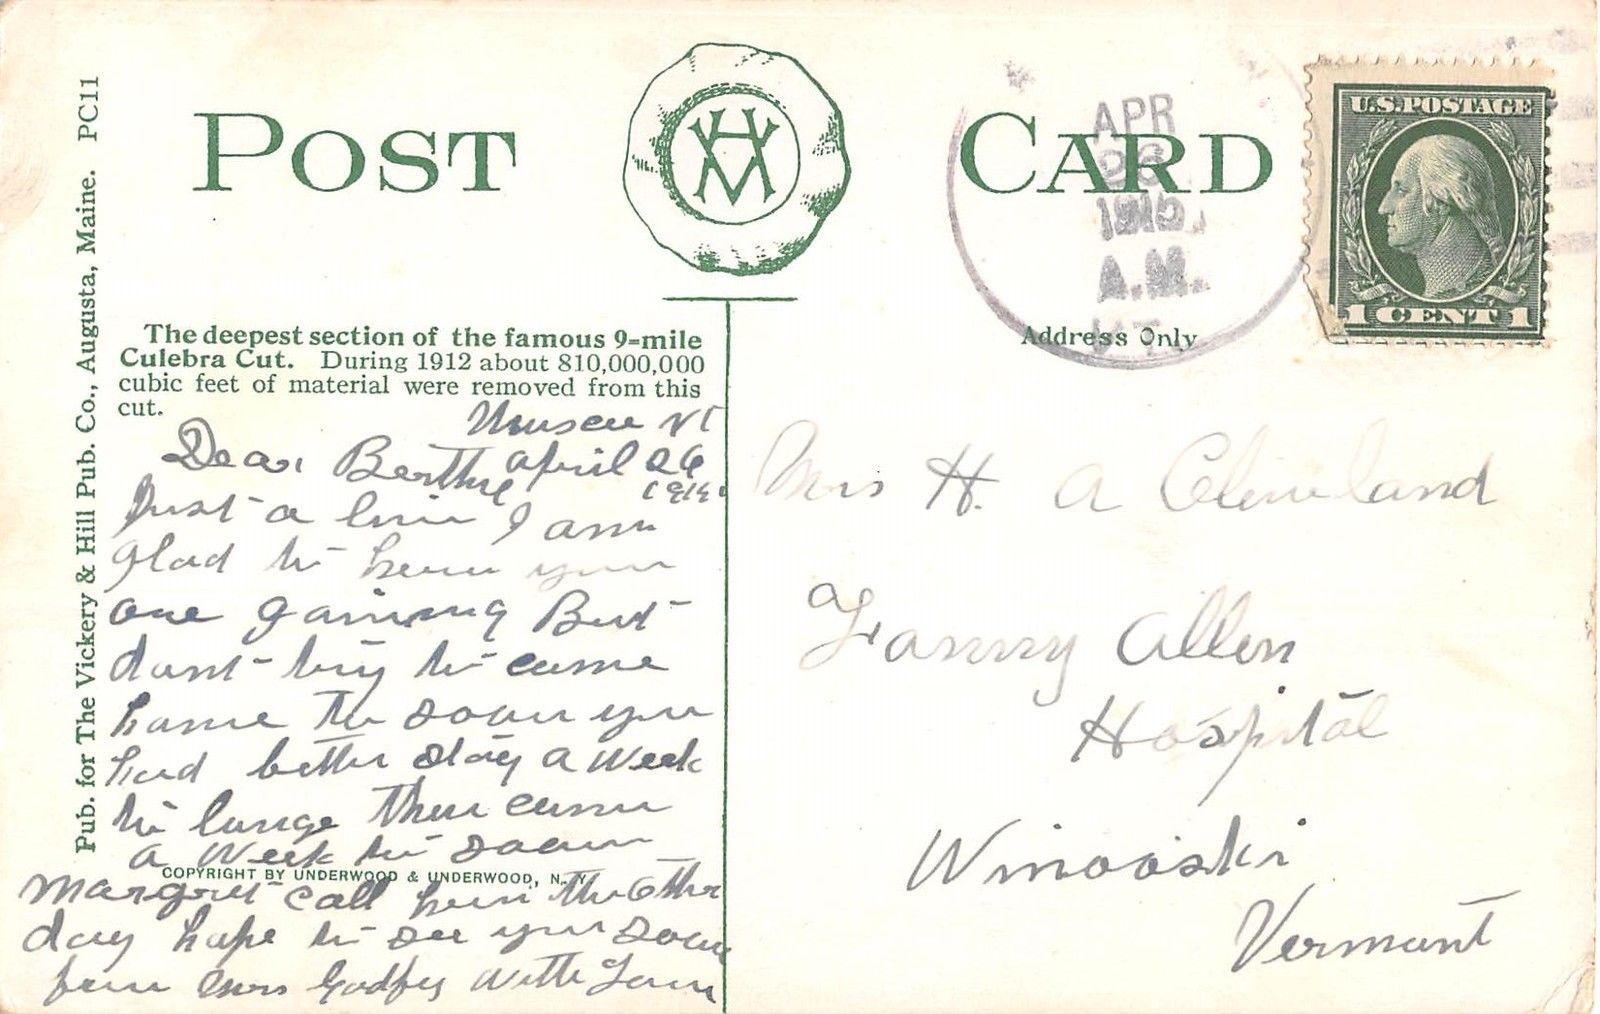 POST CARD
Pub. for The Vickery & Hill Pub. Co., Augusta, Maine. PC11
APR
26
1915
A.M.
VT.
U.S. POSTAGE
1 CENT 1
The deepest section of the famous 9=mile
Culebra Cut. During 1912 about 810,000,000
cubic feet of material were removed from this
cut.
Vt
April 26
Dear Berthe
Just a line I am
glad to hear you
are gaining But
dont try to come
home to soon you
had better stay a week
to longe then come
a week to soon
COPYRIGHT BY UNDERWOOD & UNDERWOOD, N.Y.
Margret call here the other
day hope to see you soon
from Mrs Godfey with Love
Address Only
Mrs H. A Cleveland
Fanny Allen
Hospital
Winooski
Vermont